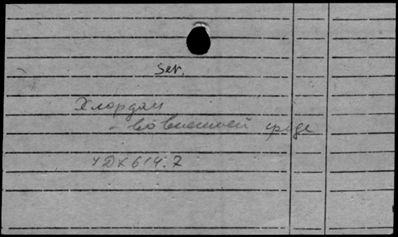 Ser.
Хлордан
- во внешней среде
УДК 614.7